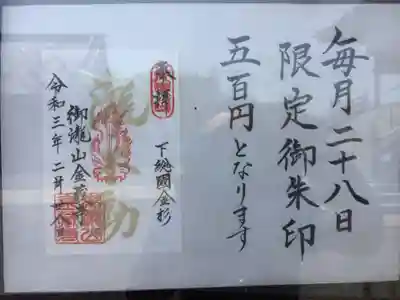 毎月二十八日
限定御朱印
五百円となります
奉拝
下総國金杉
瀧不動
御瀧山金蔵寺
令和三年二月廿八日